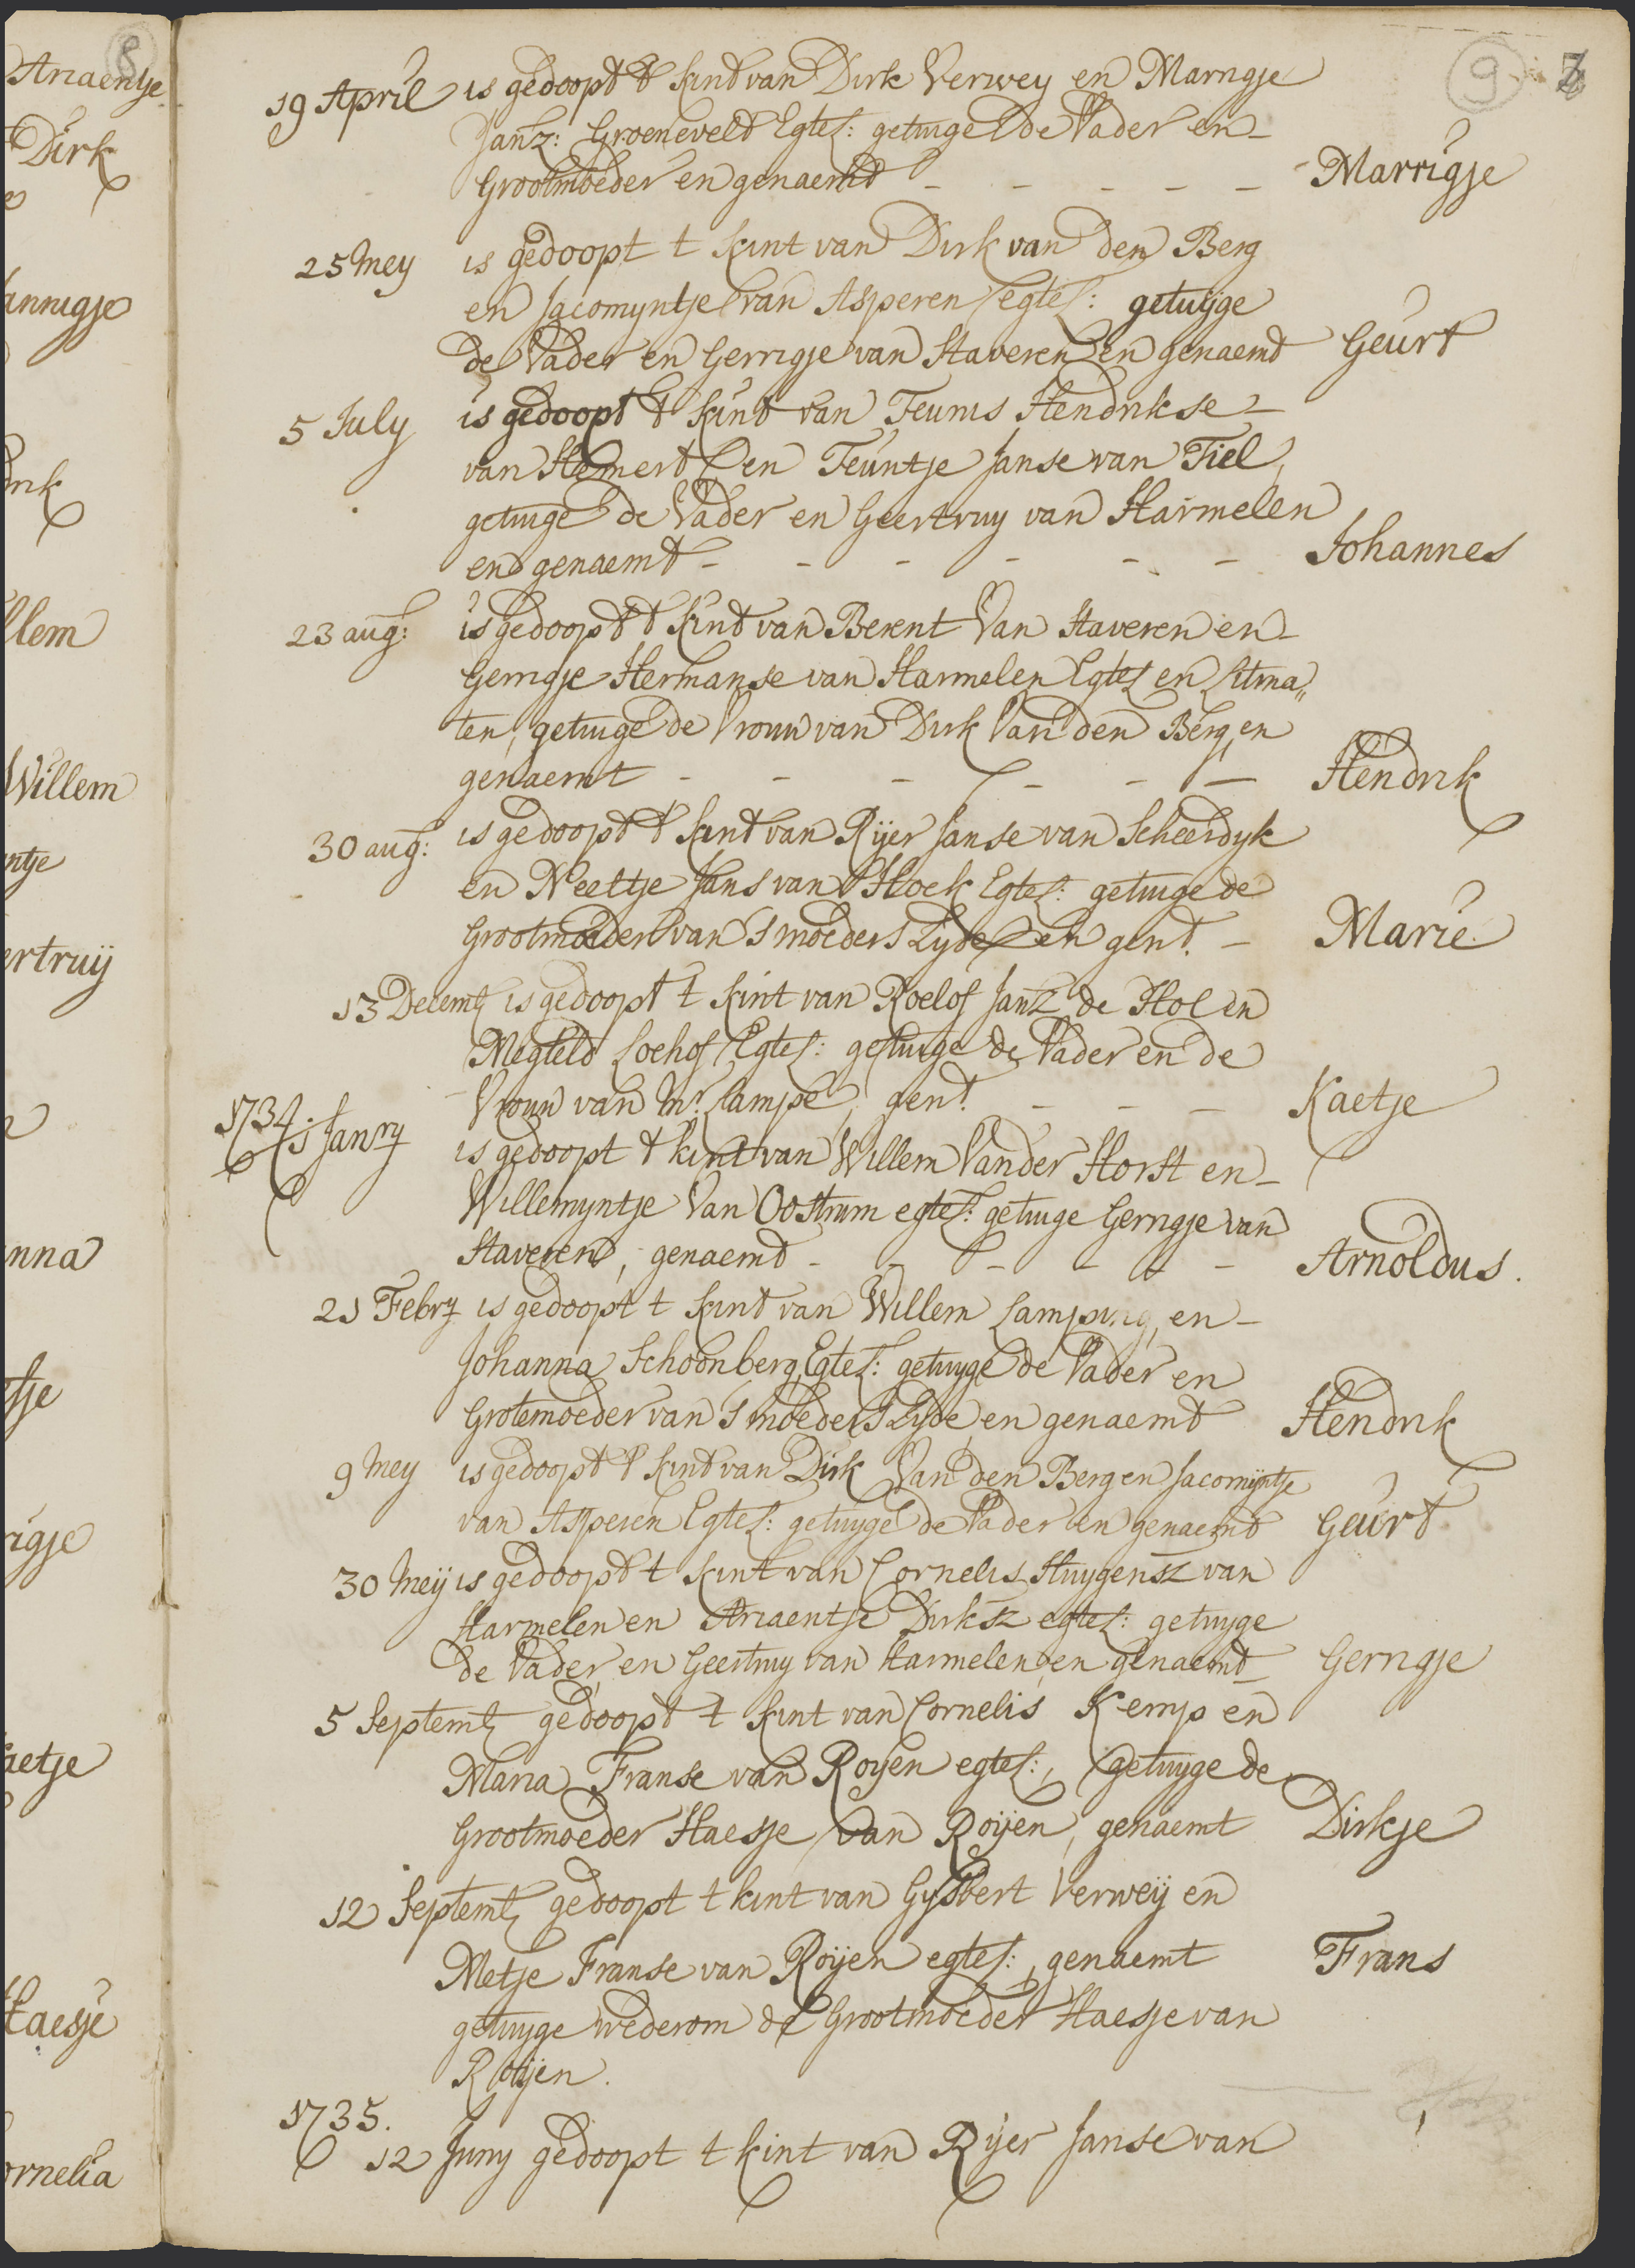 Ariaentje
Dirk
annigje
llem
Willem
ntje
ertruij
nna
tje
rigje
aetje
Haesje
ornelia
8
9 7
19 April is gedoopt t kint van Dirk Verwey en Marrigje
Janz: Groeneveld Egtel: getuige de Vader en
Grootmoeder en genaemt - - - - - Marrigje
25 Mey is gedoopt t kint van Dirk van den Berg
en Jacomyntje van Asperen egtel: getuijge
de Vader en Gerrigje van Staveren en genaemt Geurt
5 July is gedoopt t kint van Teunis Hendrikse
van Hemert en Teuntje Janse van Tiel,
getuige de Vader en Geertruy van Harmelen
en genaemt - - - - - - Johannes
23 aug: is gedoopt t kint van Berent Van Staveren en
Gerrigje Hermanse van Harmelen Egtel en Litma„
ten, getuige de Vrouw van Dirk Van den Berg, en
genaemt - - - - - - Hendrik
30 aug: is gedoopt t kint van Rijer Janse van Scheerdyk
en Neeltje Jans van Hoek Egtel: getuige de
Grootmoeder van S moeders Zyde en gent. - Marie
13 Decemb is gedoopt t kint van Roelof Janz de Hol en
Megteld Loehof Egtel: getuige de Vader en de
Vrouw van Mr. Lampe, gent. - - - Kaetje
1734.
Janry is gedoopt t kint van Willem Van der Horst en
Willemyntje Van Oostrum egtel: getuige Gerrigje van
Staveren, genaemt - - - - - Arnoldus.
21 Febry is gedoopt t kint van Willem Lamping, en
Johanna Schoonberg, Egtel: getuyge de Vader en
Grotemoeder van S moeders Zyde, en genaemt Hendrik
9 Mey is gedoopt t kint van Dirk Van den Berg en Jacomijntje
van Asperen Egtel: getuyge de Vader en genaemt Geurt
30 Meij is gedoopt t kint van Cornelis Huygensz van
Harmelen en Ariaentje Dirksz egtel: getuyge
de Vader, en Geertruy van Harmelen, en genaemt Gerrigje
5 Septemb gedoopt t kint van Cornelis Kemp en
Maria Franse van Royen egtel:, getuyge de
Grootmoeder Haesje van Roijen, genaemt Dirkje
12 Septemb gedoopt t kint van Gysbert Verweij en
Metje Franse van Roijen egtel:, genaemt Frans
getuyge wederom de Grootmoeder Haesje van
Roijen.
1735.
12 Juny gedoopt t kint van Rijer Janse van